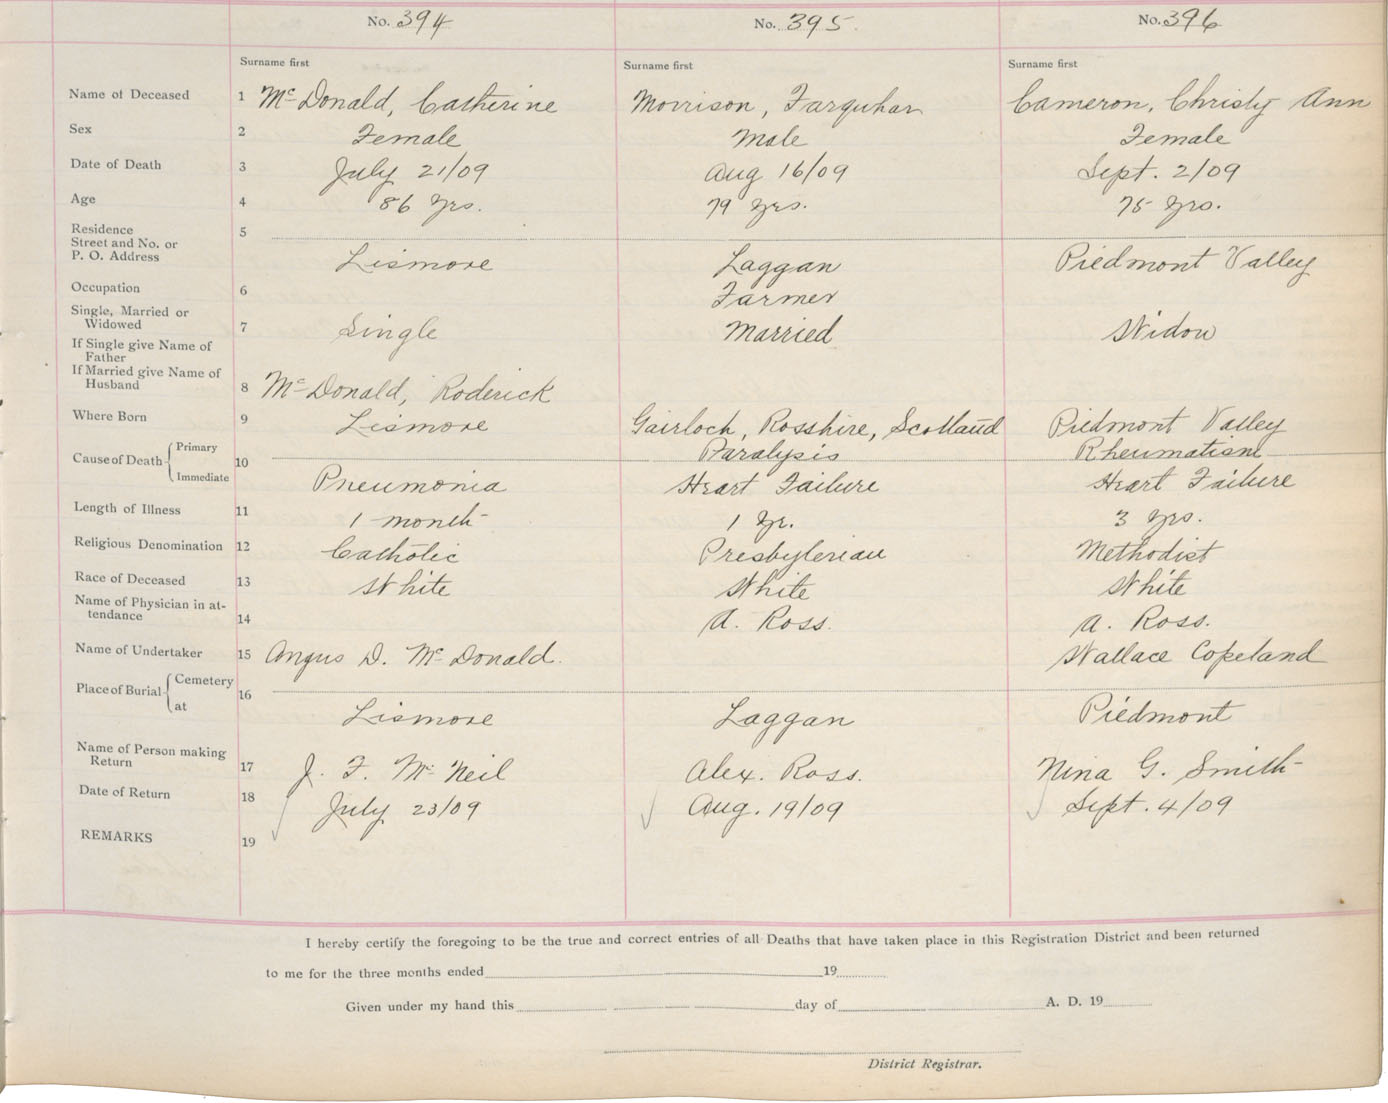 No. 394 No. 395 No. 396
Surname first Surname first Surname first
Name of Deceased 1 McDonald, Catherine Morrison, Farquhar Cameron, Christy Ann
Sex 2 Female Male Female
Date of Death 3 July 21/09 Aug 16/09 Sept. 2/09
Age 4 86 Yrs. 79 Yrs. 75 Yrs.
Residence 5
Street and No. or
P. O. Address Lismore Laggan Piedmont Valley
Occupation 6 Farmer
Single, Married or
Widowed 7 Single Married Widow
If Single give Name of
Father
If Married give Name of
Husband 8 McDonald, Roderick
Where Born 9 Lismore Gairloch, Rosshire, Scotland Piedmont Valley
Cause of Death Primary 10 Paralysis Rheumatism
Immediate Pneumonia Heart Failure Heart Failure
Length of Illness 11 1 month 1 Yr. 3 yrs.
Religious Denomination 12 Catholic Presbyterian Methodist
Race of Deceased 13 White White White
Name of Physician in at-
tendance 14 A. Ross. A. Ross.
Name of Undertaker 15 Angus D. McDonald. Wallace Copeland
Place of Burial Cemetery 16
at Lismore Laggan Piedmont
Name of Person making
Return 17 J. F. McNeil Alex. Ross. Nina G. Smith
Date of Return 18 July 23/09 Aug. 19/09 Sept. 4/09
REMARKS 19
I hereby certify the foregoing to be the true and correct entries of all Deaths that have taken place in this Registration District and been returned
to me for the three months ended 19
Given under my hand this day of A. D. 19
District Registrar.